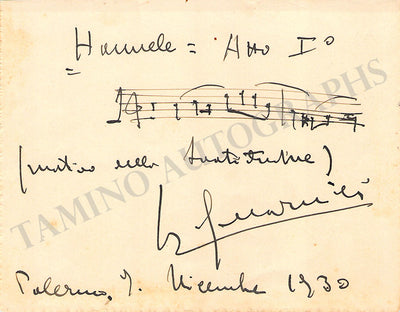 Hannele = Atto I°
(motivo della beatitudine)
Palermo, Dicembre 1930
TAMINO AUTOGRAPHS